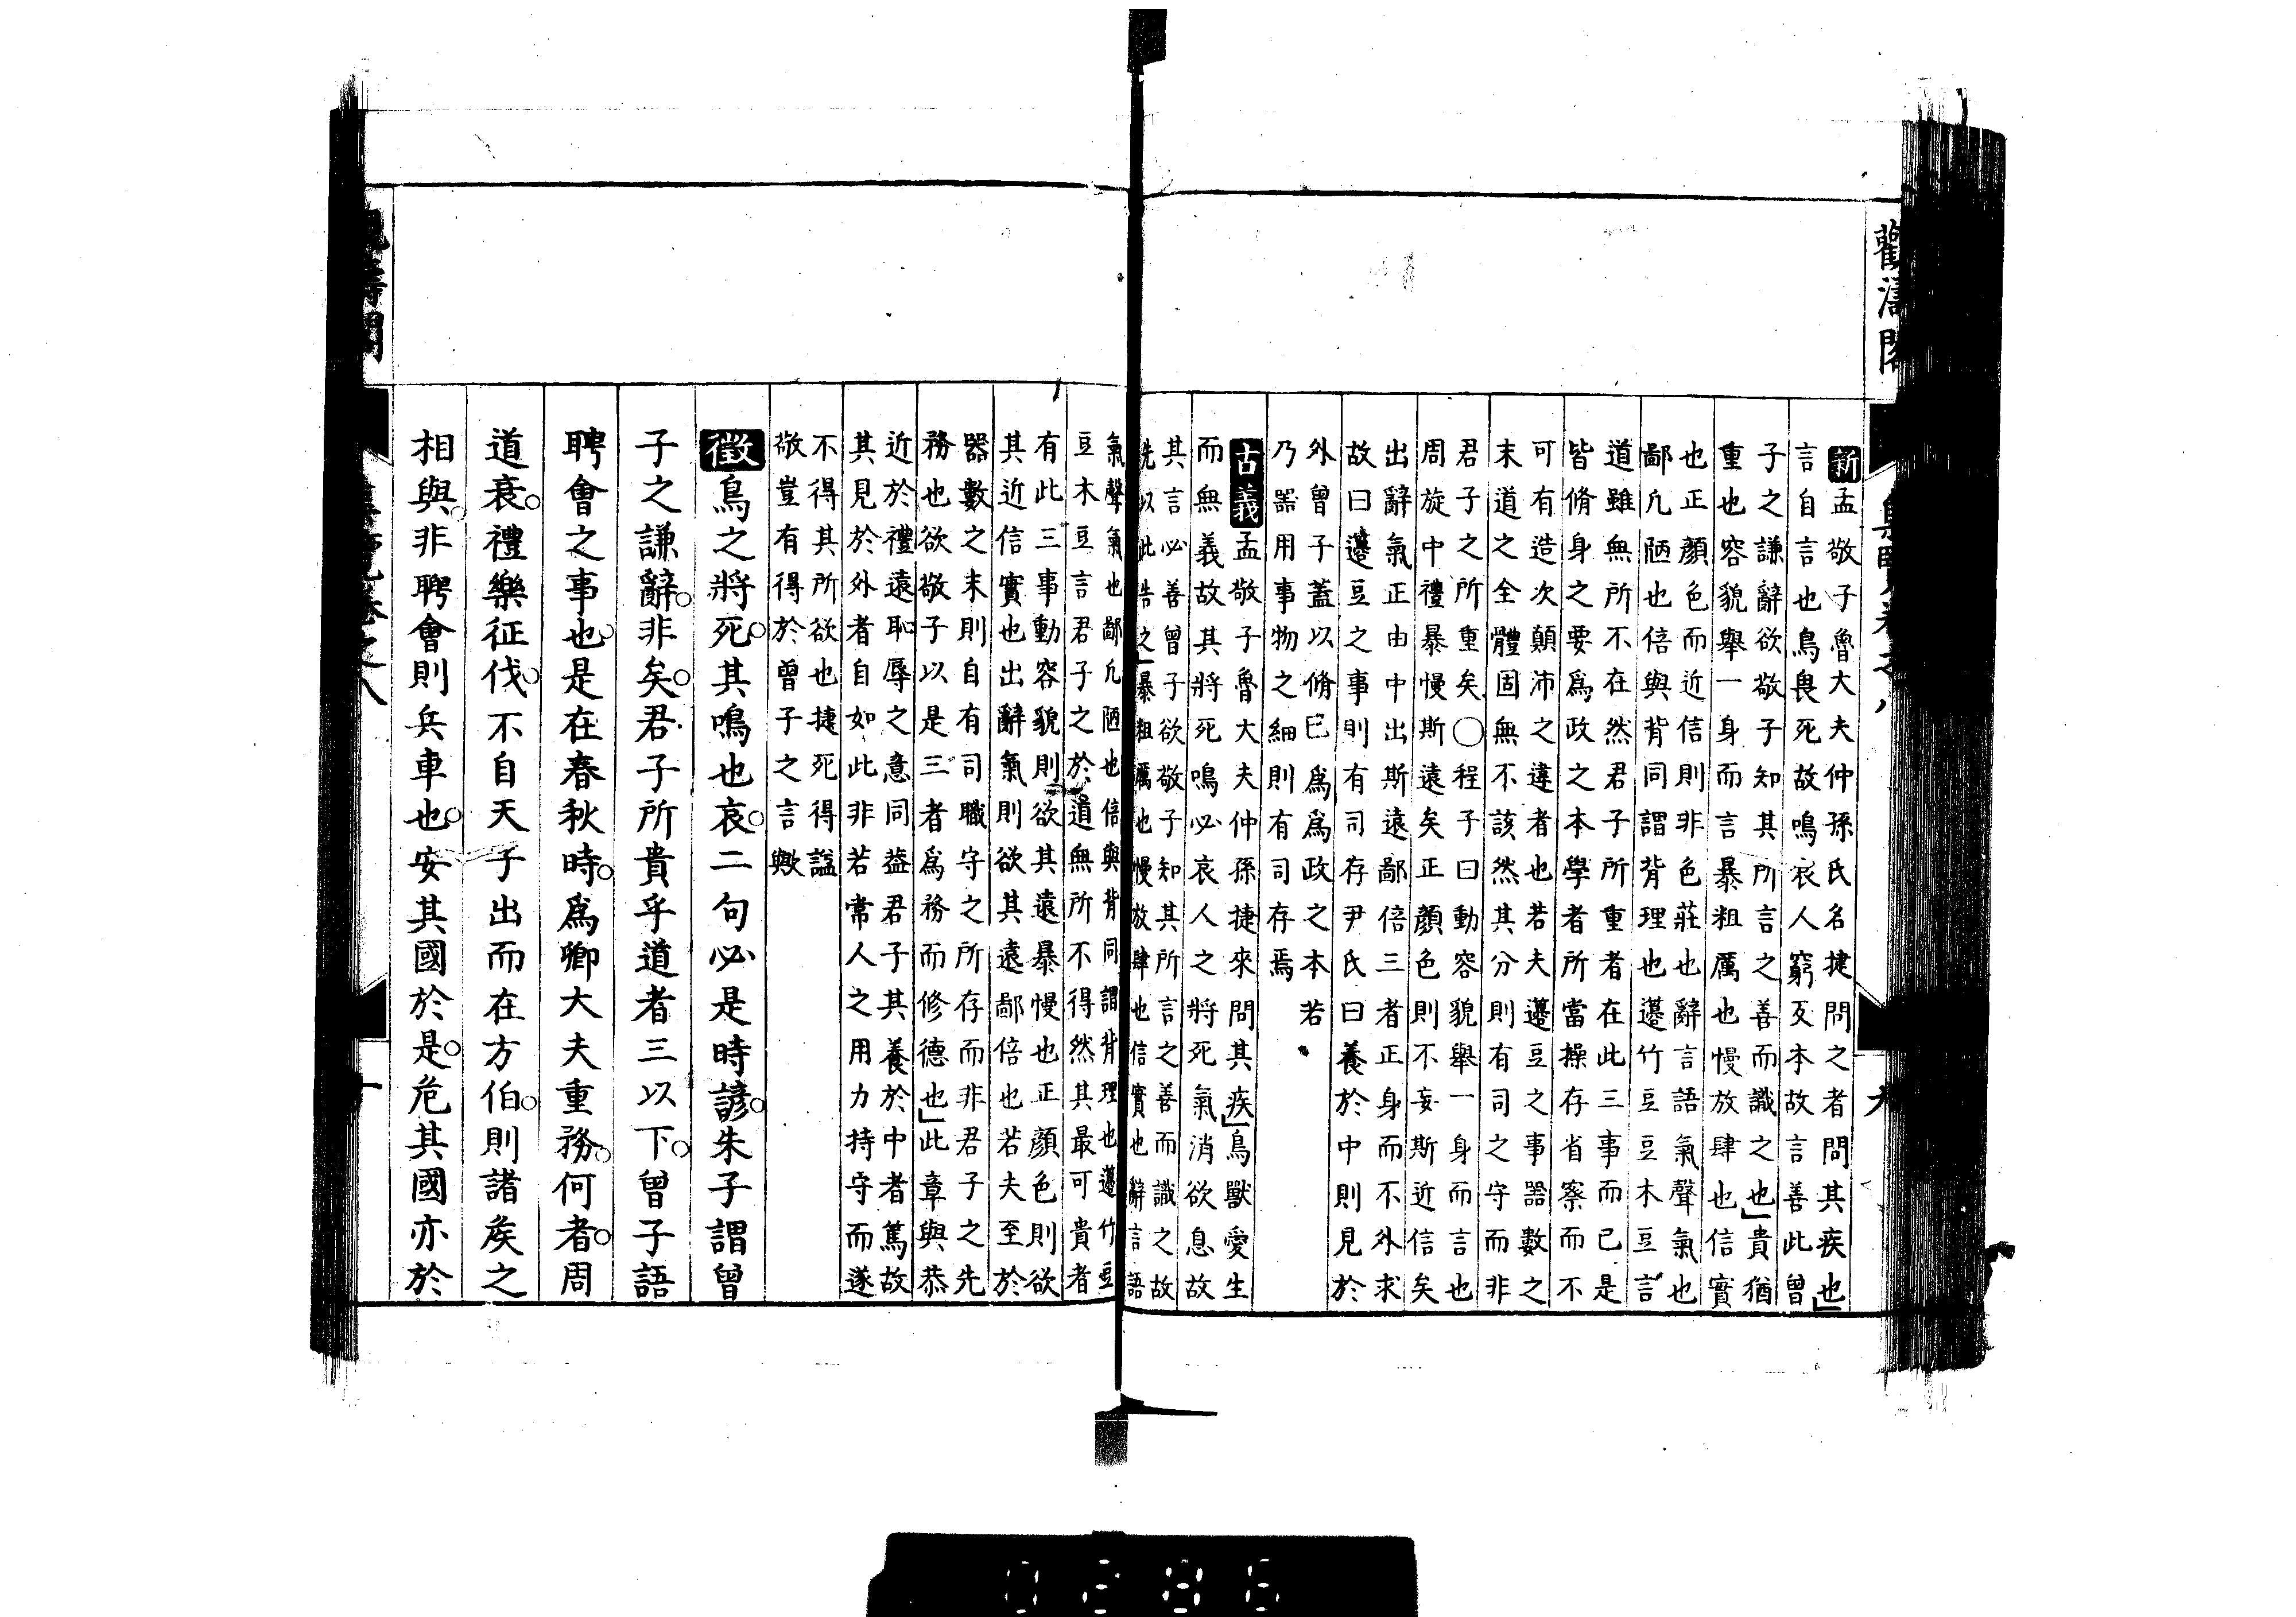 觀濤閣
新孟敬子魯大夫仲孫氏名捷問之者問其疾也」
言自言也鳥畏死故鳴哀人窮反本故言善此曾
子之謙辭欲敬子知其所言之善而識之也」貴猶
重也容貌舉一身而言暴粗厲也慢放肆也信實
也正顏色而近信則非色莊也辭言語氣聲氣也
鄙凡陋也倍與背同謂背理也籩竹豆豆木豆言
道雖無所不在然君子所重者在此三事而已是
皆脩身之要爲政之本學者所當操存省察而不
可有造次顛沛之違者也若夫籩豆之事器數之
末道之全體固無不該然其分則有司之守而非
君子之所重矣○程子曰動容貌舉一身而言也
周旋中禮暴慢斯遠矣正顏色則不妄斯近信矣
出辭氣正由中出斯遠鄙倍三者正身而不外求
故曰籩豆之事則有司存尹氏曰養於中則見於
外曾子蓋以脩已爲爲政之本若
乃器用事物之細則有司存焉
古義孟敬子魯大夫仲孫捷來問其疾」鳥獸愛生
而無義故其將死鳴必哀人之將死氣消欲息故
其言必善曾子欲敬子知其所言之善而識之故
先以此告之」暴粗厲也慢放肆也信實也辭言語
氣聲氣也鄙凡陋也倍與背同謂背理也籩竹豆
豆木豆言君子之於道無所不得然其最可貴者
有此三事動容貌則欲其遠暴慢也正顏色則欲
其近信實也出辭氣則欲其遠鄙倍也若夫至於
器數之末則自有司職守之所存而非君子之先
務也欲敬子以是三者爲務而修德也」此章與恭
近於禮遠恥辱之意同益君子其養於中者篤故
其見於外者自如此非若常人之用力持守而遂
不得其所欲也捷死得諡
敬豈有得於曾子之言歟
徵鳥之將死。其鳴也哀。二句必是時諺。朱子謂曾
子之謙辭。非矣。君子所貴乎道者三以下。曾子語
聘會之事也。是在春秋時。爲卿大夫重務。何者。周
道衰。禮樂征伐。不自天子出而在方伯。則諸矦之
相與。非聘會則兵車也。安其國於是。危其國亦於